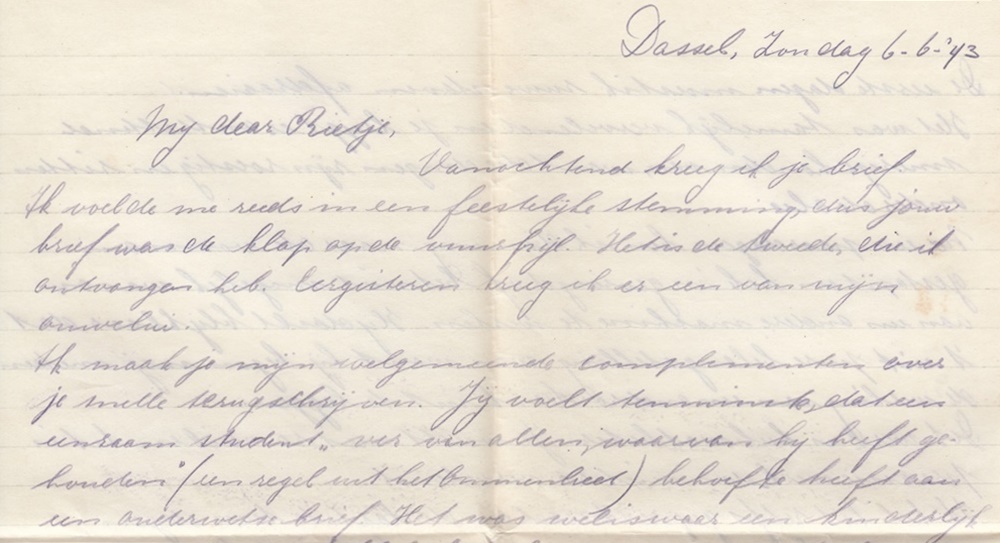 Dassel, Zondag 6-6-'43
My dear Rietje,
Vanochtend kreeg ik je brief.
Ik voelde me reeds in een feestelijke stemming, dus jouw
brief was de klap op de vuurpijl. Het is de tweede, die ik
ontvangen heb. Eergisteren kreeg ik er een van mijn
ouwelui.
Ik maak je mijn welgemeende complimenten over
je snelle terugschrijven. Jij voelt tenminste, dat een
eenzaam student „ver van allen, waarvan hij heeft ge-
houden" (een regel uit het Ommenlied) behoefte heeft aan
een ouderwetse brief. Het was weliswaar een kinderlijk